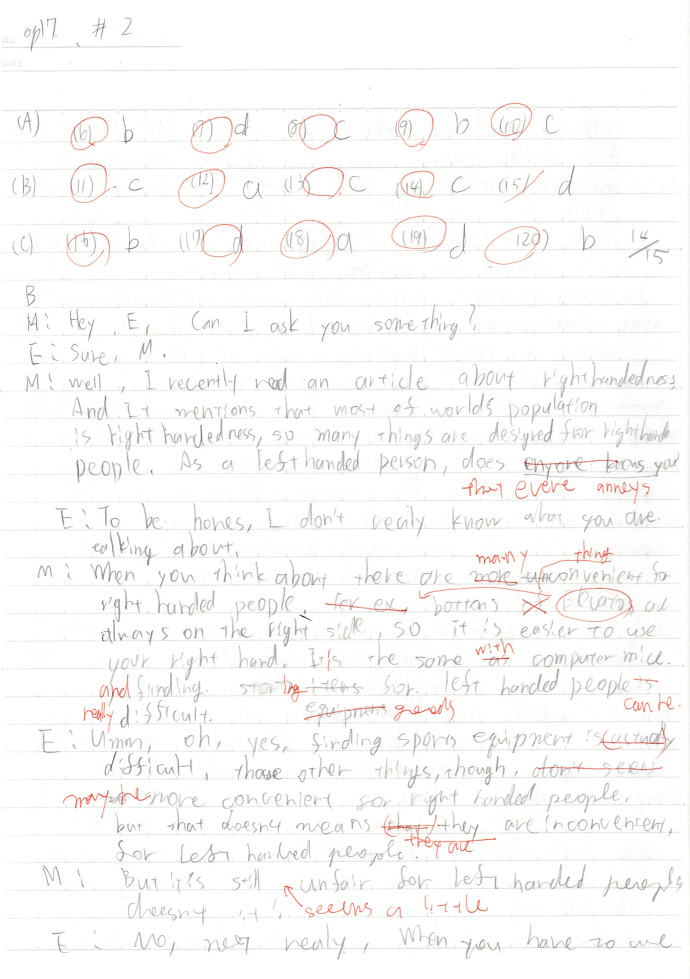 No. op17. #2
DATE
(A) (6) b (7) d (8) c (9) b (10) c
(B) (11) c (12) a (13) c (14) c (15) d
(C) (16) b (17) d (18) a (19) d (20) b 14/15
B
M: Hey, E, Can I ask you something?
E: Sure, M.
M: well, I recently read an article about righthandedness.
And It mentions that most of worlds population
is right handedness, so many things are designed for right hand
people. As a left handed person, does anyone knows you
that annoys
E: To be hones, I don't realy know what you are
talking about.
many thing
M: When you think about there are more unconvenient for
right handed people. for ex bottons
always on the right side, so it is easier to use
with
your right hand. It's the same as computer mice.
and finding for left handed people is
really difficult. goods can be.
E: Umm, oh, yes, finding sports equipment is (actually)
difficult, those other things, though, don't seem
more convenient for right handed people.
but that doesn't means (that) they are inconvenient,
for left handed people. they are
M: But it's still unfair for left handed people
doesn't it? seems a little
E: No, not realy, When you have to use